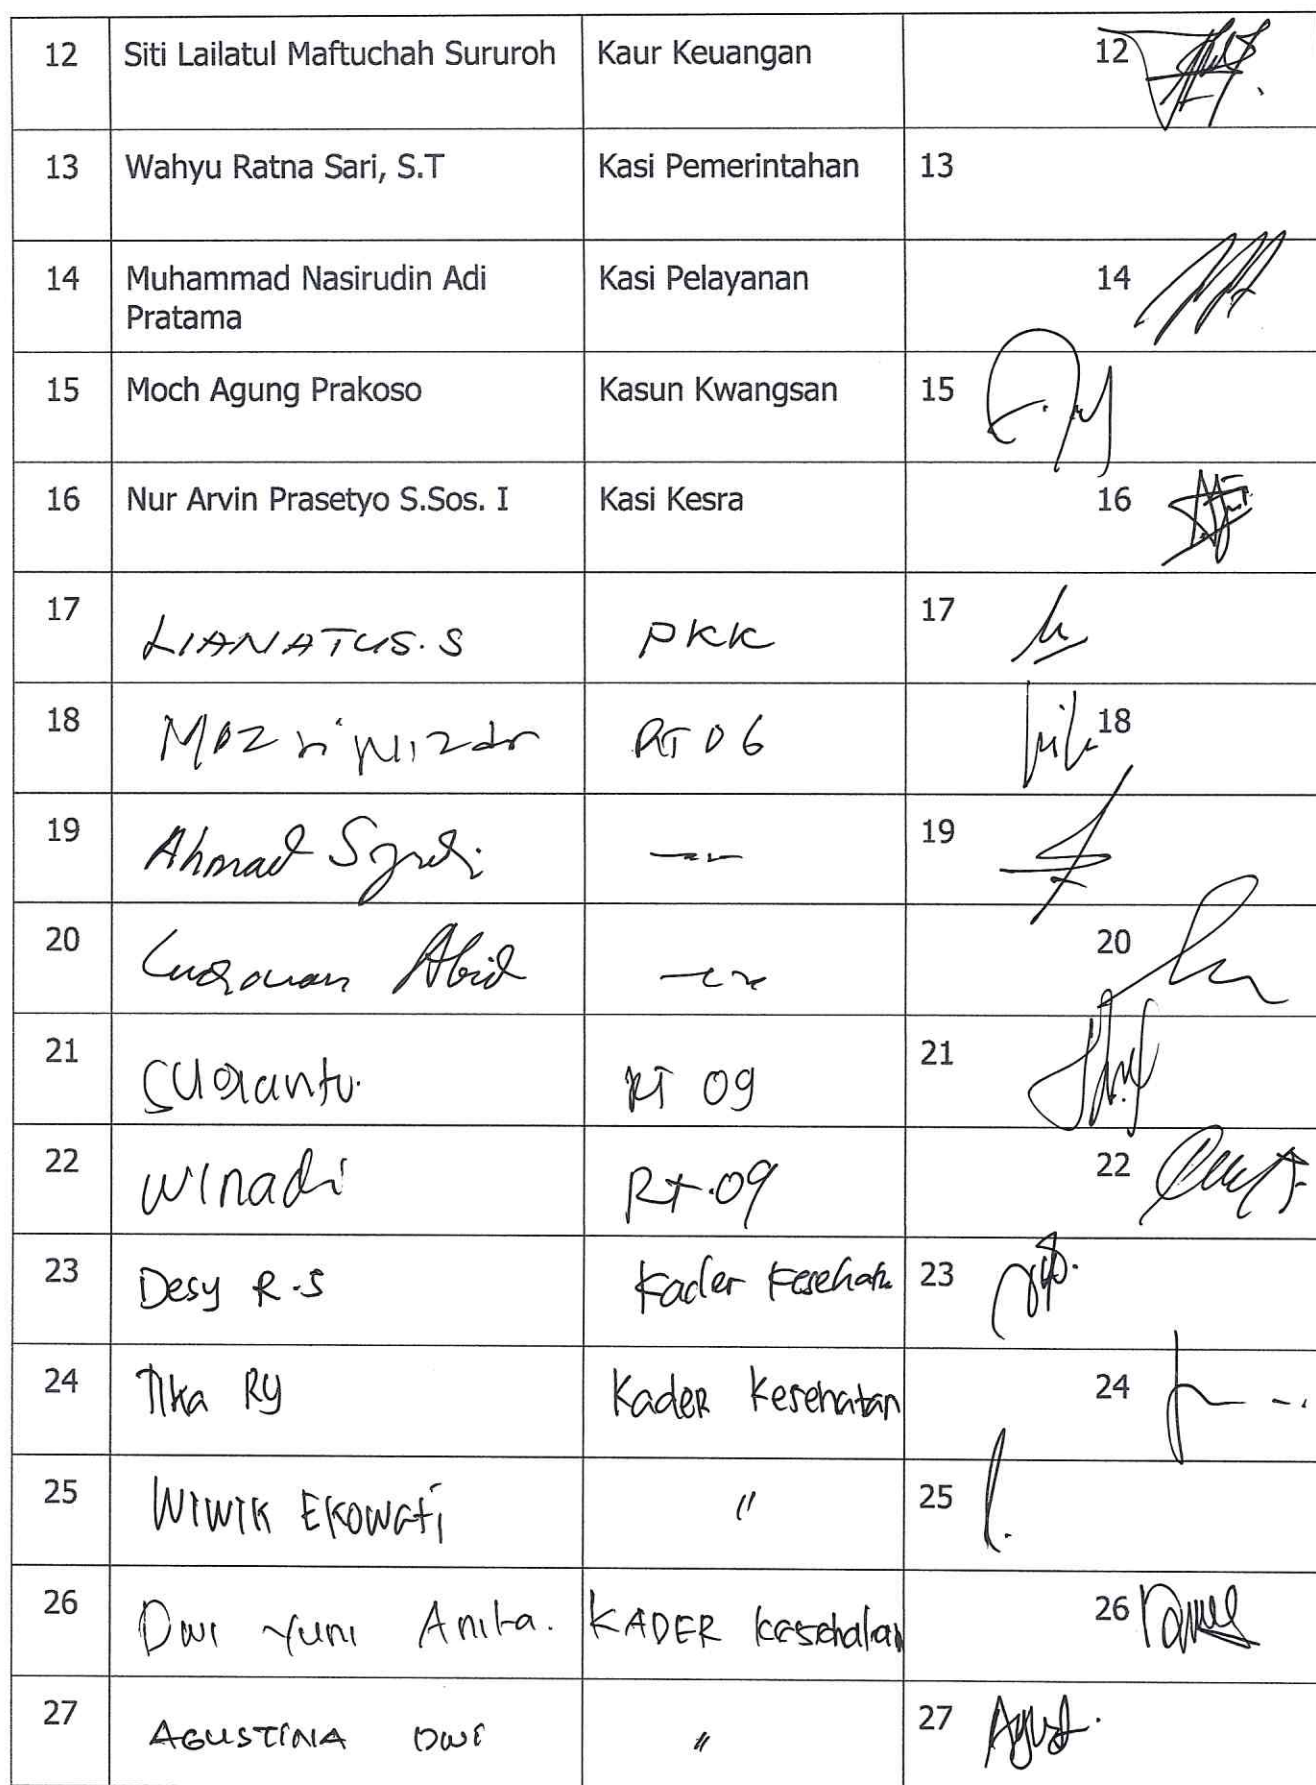 12 Siti Lailatul Maftuchah Sururoh Kaur Keuangan 12
13 Wahyu Ratna Sari, S.T Kasi Pemerintahan 13
14 Muhammad Nasirudin Adi Kasi Pelayanan 14
Pratama
15 Moch Agung Prakoso Kasun Kwangsan 15
16 Nur Arvin Prasetyo S.Sos. I Kasi Kesra 16
17 LIANATUS.S PKK 17
18 RT 06 18
19 Ahmad 19
20 Abid 20
21 RT 09 21
22 WInadi Rt.09 22
23 Desy R.S Kader 23
24 Tika RY Kader Kesehatan 24
25 WIWIK EKOWATi " 25
26 Dwi Yuni Anita. KADER kesehatan 26
27 AGUSTINA DWI " 27